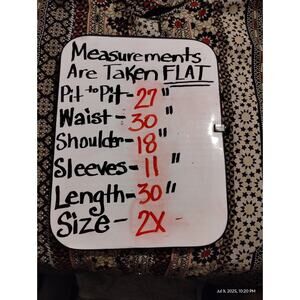 Measurements
Are Taken FLAT
Pit to Pit- 27"
Waist- 30"
Shoulder- 18"
Sleeves- 11"
Length- 30"
Size- 2X
Jul 9, 2025, 10:20 PM